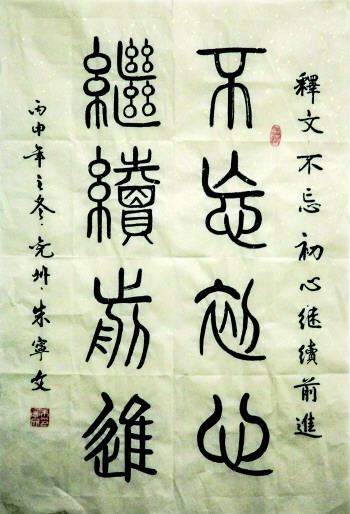 釋文不忘初心继續前進
不忘初心
繼續前進
丙申年之冬亮州朱寧文